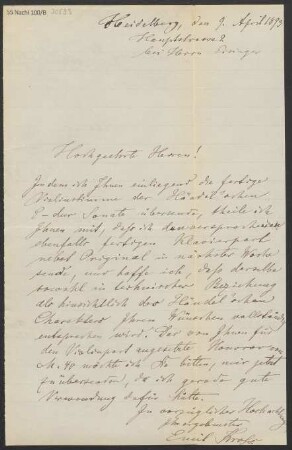 55 Nachl 100/B
Heidelberg, den 9. April 1893
Hauptstrasse 2
bei Herrn
Hochgeehrte Herren!
Indem ich Ihnen einliegend die fertige
Violinstimme der Händel'schen
E-dur Sonate übersende, theile ich
Ihnen mit, dass ich den versprochenen
ebenfalls fertigen Klavierpart
nebst Original in nächster Woche
sende, und hoffe ich, dass derselbe
sowohl in technischer Beziehung
als hinsichtlich des Händel'schen
Charakters Ihren Wünschen vollständig
entsprechen wird. Das von Ihnen für
den Violinpart angesetzte Honorar von
M. 40 möchte ich Sie bitten, mir jetzt
zu übersenden, da ich gerade gute
Verwendung dafür hätte.
In vorzüglicher Hochacht.
Ihr ergebenster
Emil